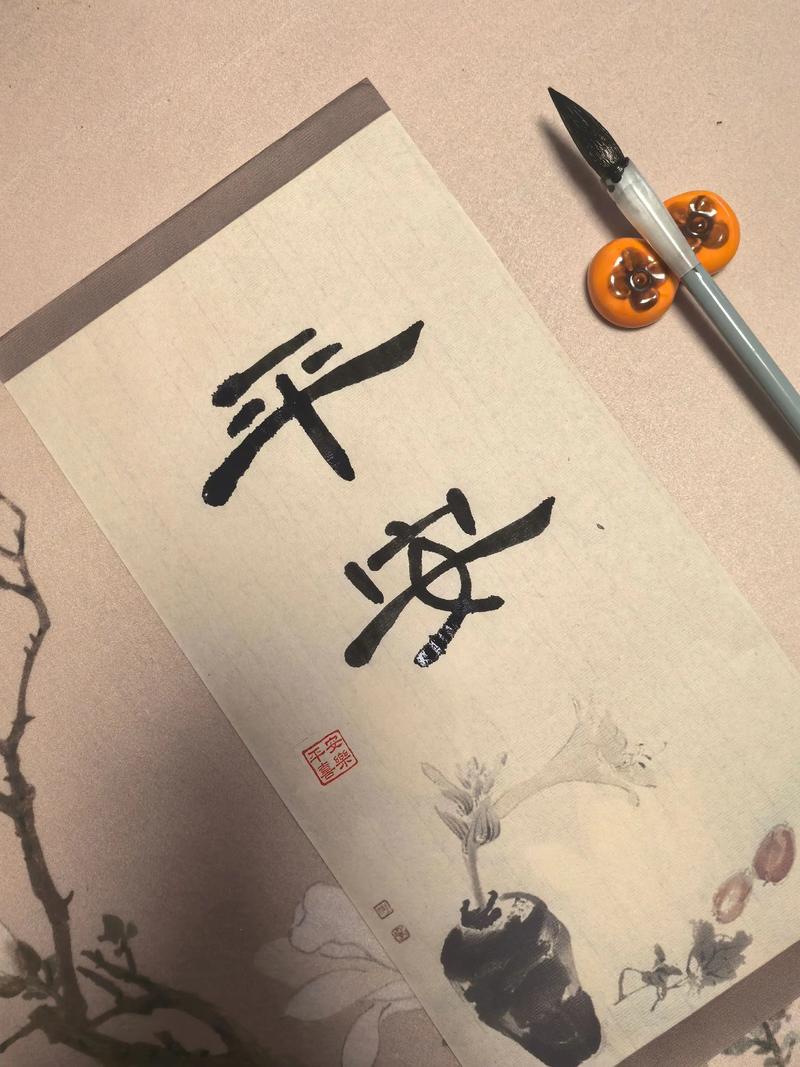 平安
平安
喜樂